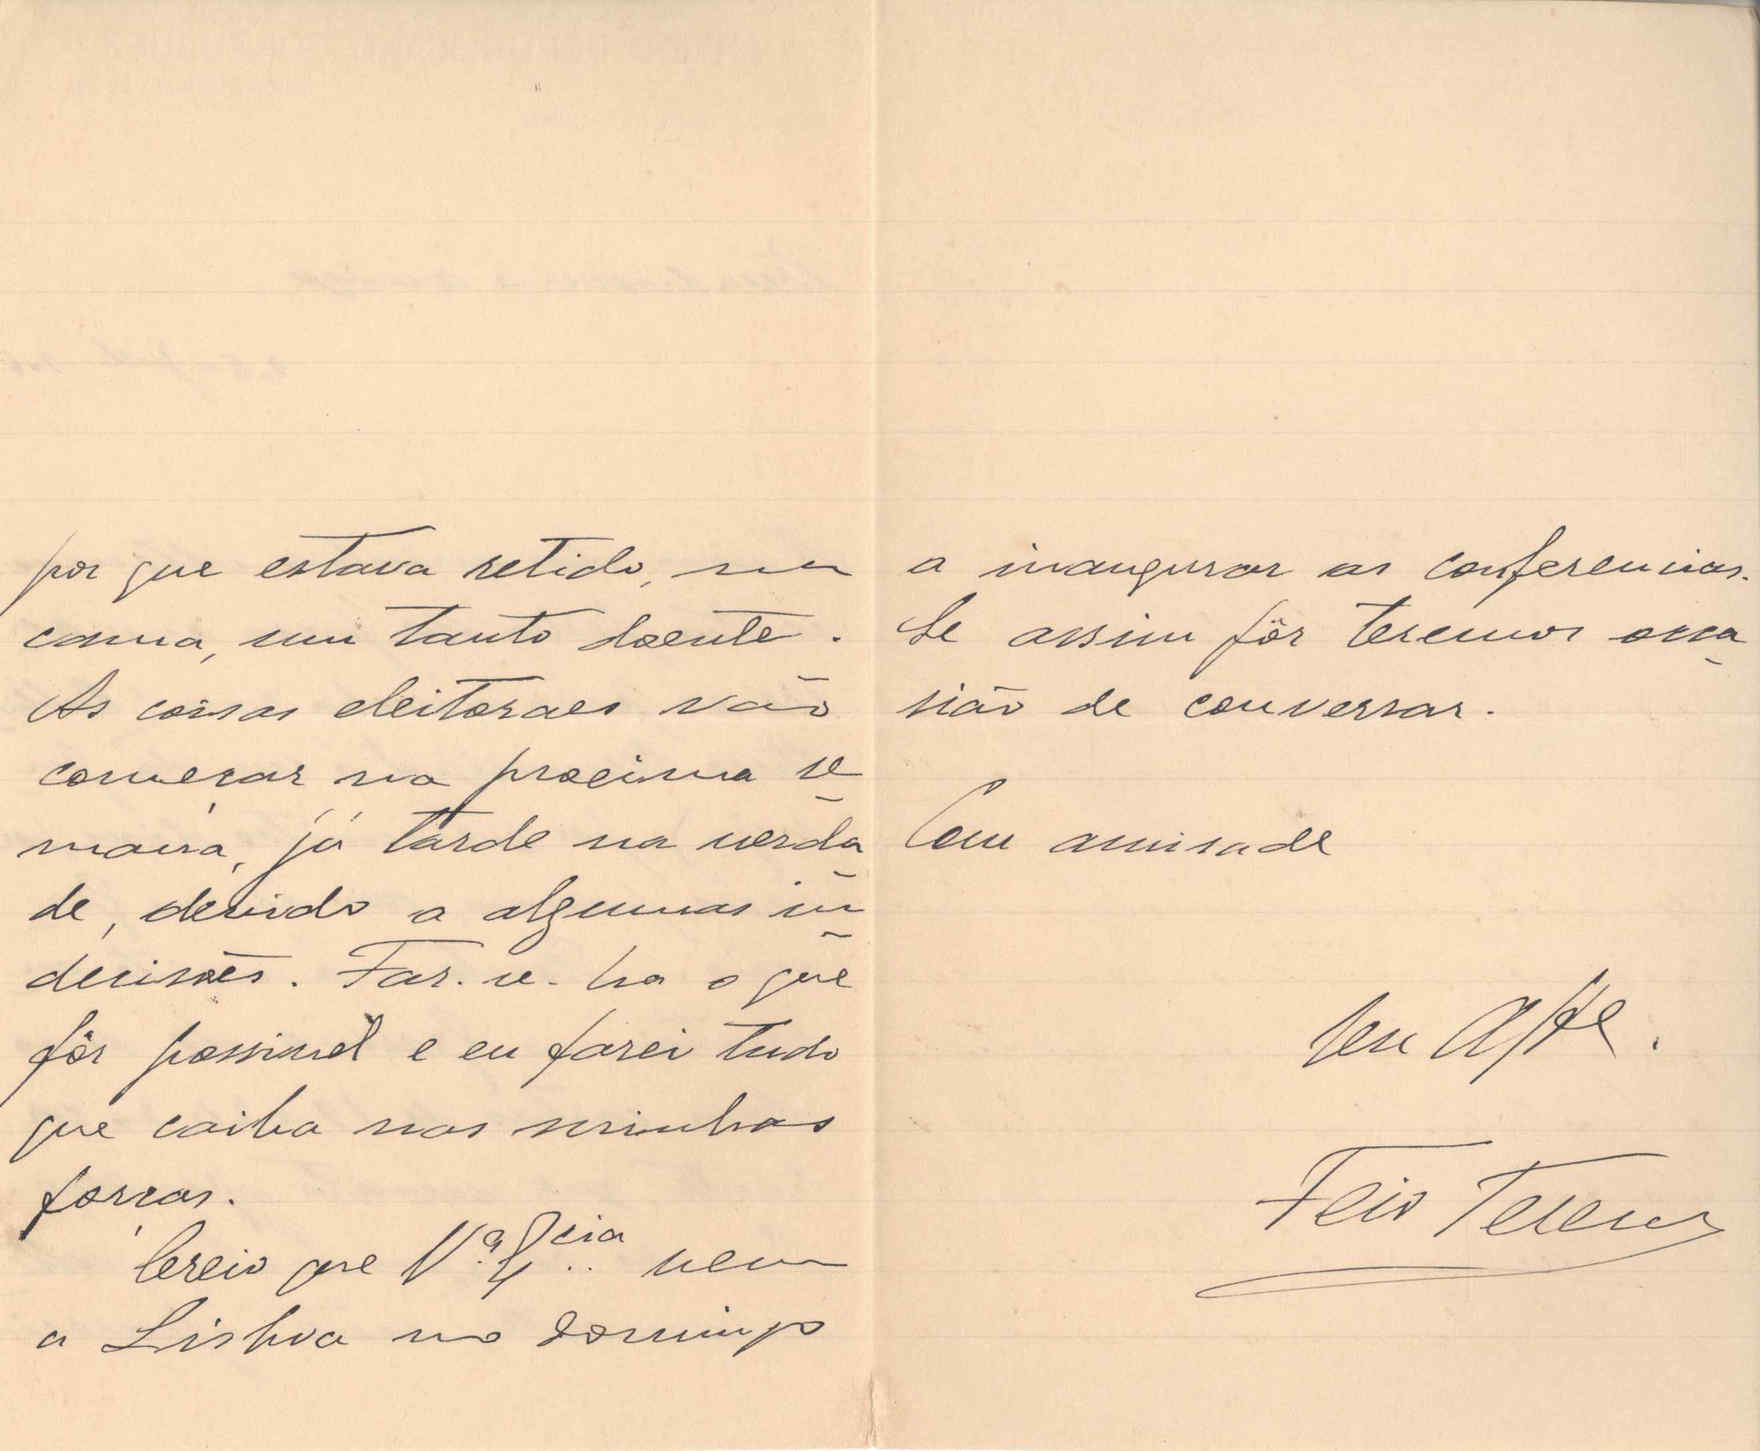 por que estava retido, na
cama, um tanto doente.
As coisas eleitoraes vão
começar na proxima se-
mana, já tarde na verda-
de, devido a algumas in-
decisões. Far-se-ha o que
fôr possivel e eu farei tudo
que caiba nas minhas
forças.
Creio que V.ª Ex.cia vem
a Lisboa no domingo
a inaugurar as conferencias.
Se assim fôr teremos occa-
sião de conversar.
Com amisade
Seu Aff.e.
Feio Terenas